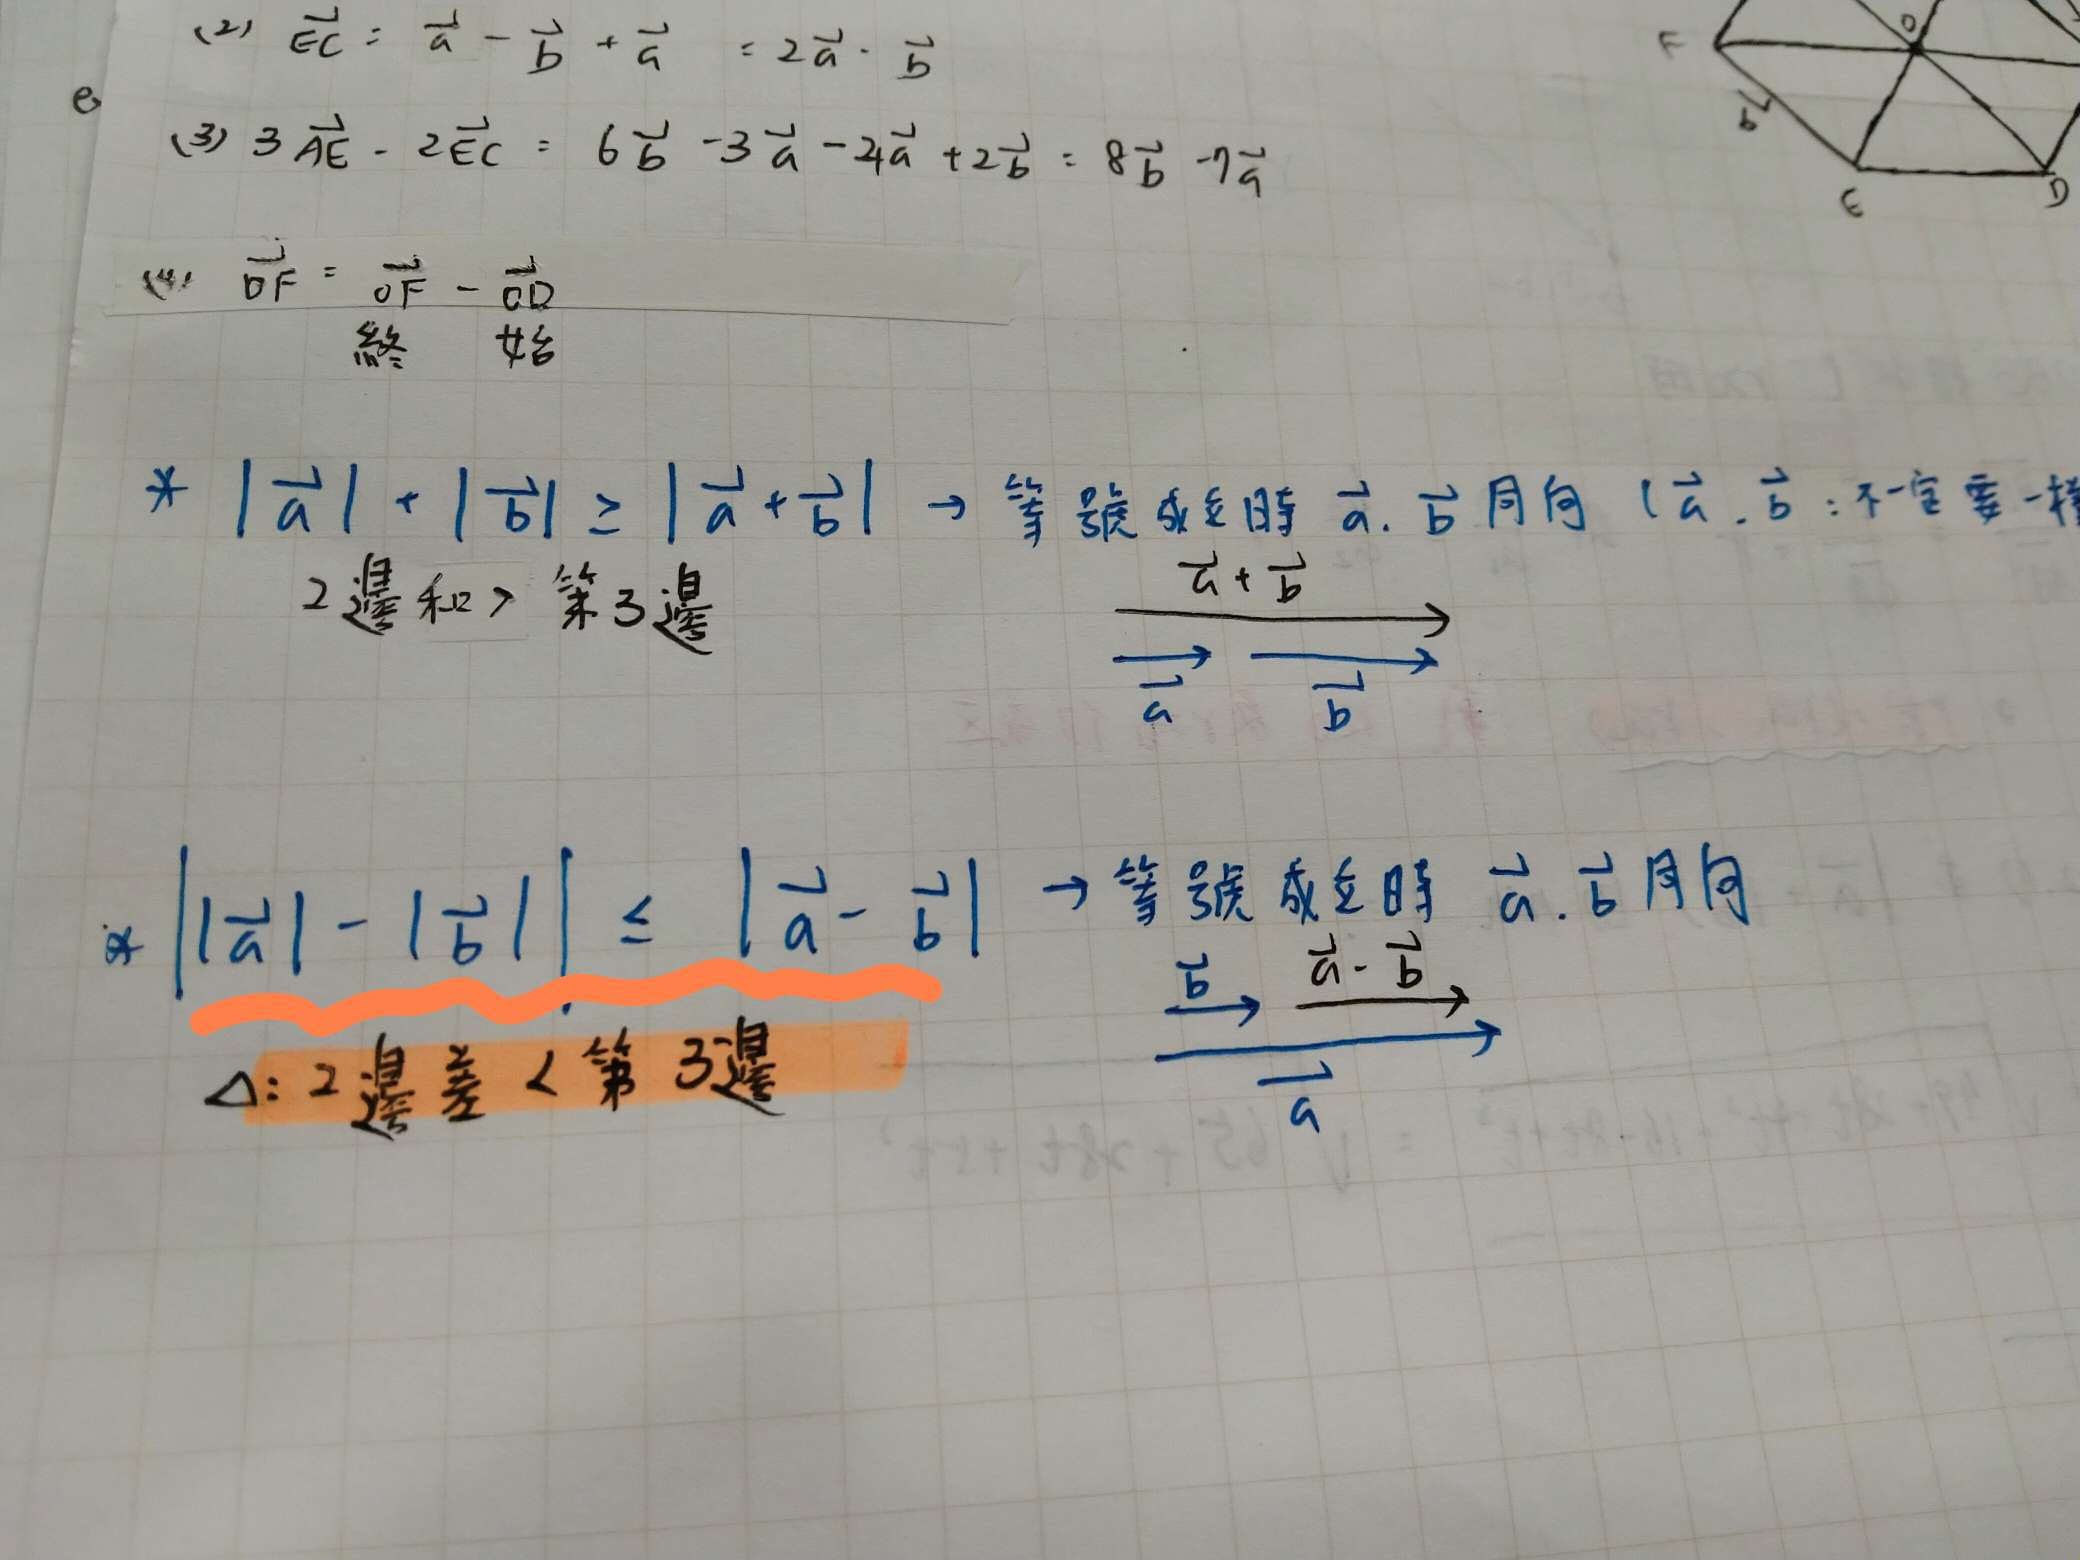 (2) EC⃗ = a⃗ - b⃗ + a⃗ = 2a⃗ - b⃗
(3) 3AE⃗ - 2EC⃗ = 6b⃗ - 3a⃗ - 4a⃗ + 2b⃗ = 8b⃗ - 7a⃗
(4) DF⃗ = OF⃗ - OD⃗
終 始
F
O
b⃗
E
D
* |a⃗| + |b⃗| ≥ |a⃗ + b⃗| → 等號成立時 a⃗. b⃗ 同向 (a⃗. b⃗ : 不一定要一樣
2邊和 > 第3邊
a⃗ + b⃗
a⃗ b⃗
* ||a⃗| - |b⃗|| ≤ |a⃗ - b⃗| → 等號成立時 a⃗. b⃗ 同向
b⃗ a⃗ - b⃗
a⃗
△: 2邊差 < 第3邊